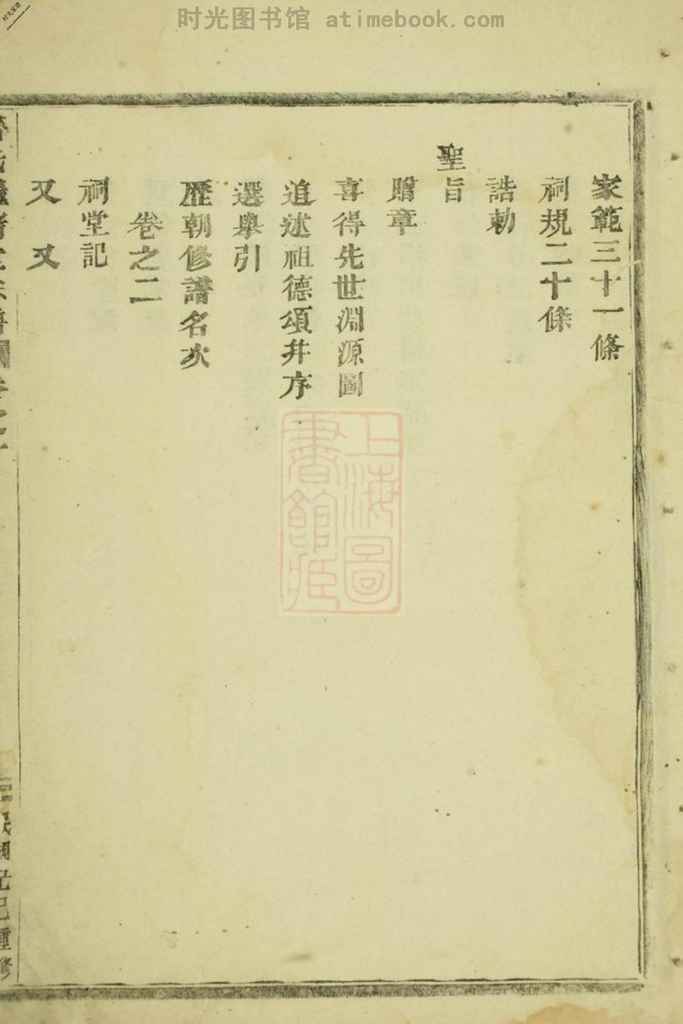 时光图书馆 atimebook.com
家範三十一條
祠規二十條
誥勅
聖旨
贈章
喜得先世淵源圖
追述祖德頌并序
選舉引
歷朝修譜名次
卷之二
祠堂記
又 又
上海圖
書館藏